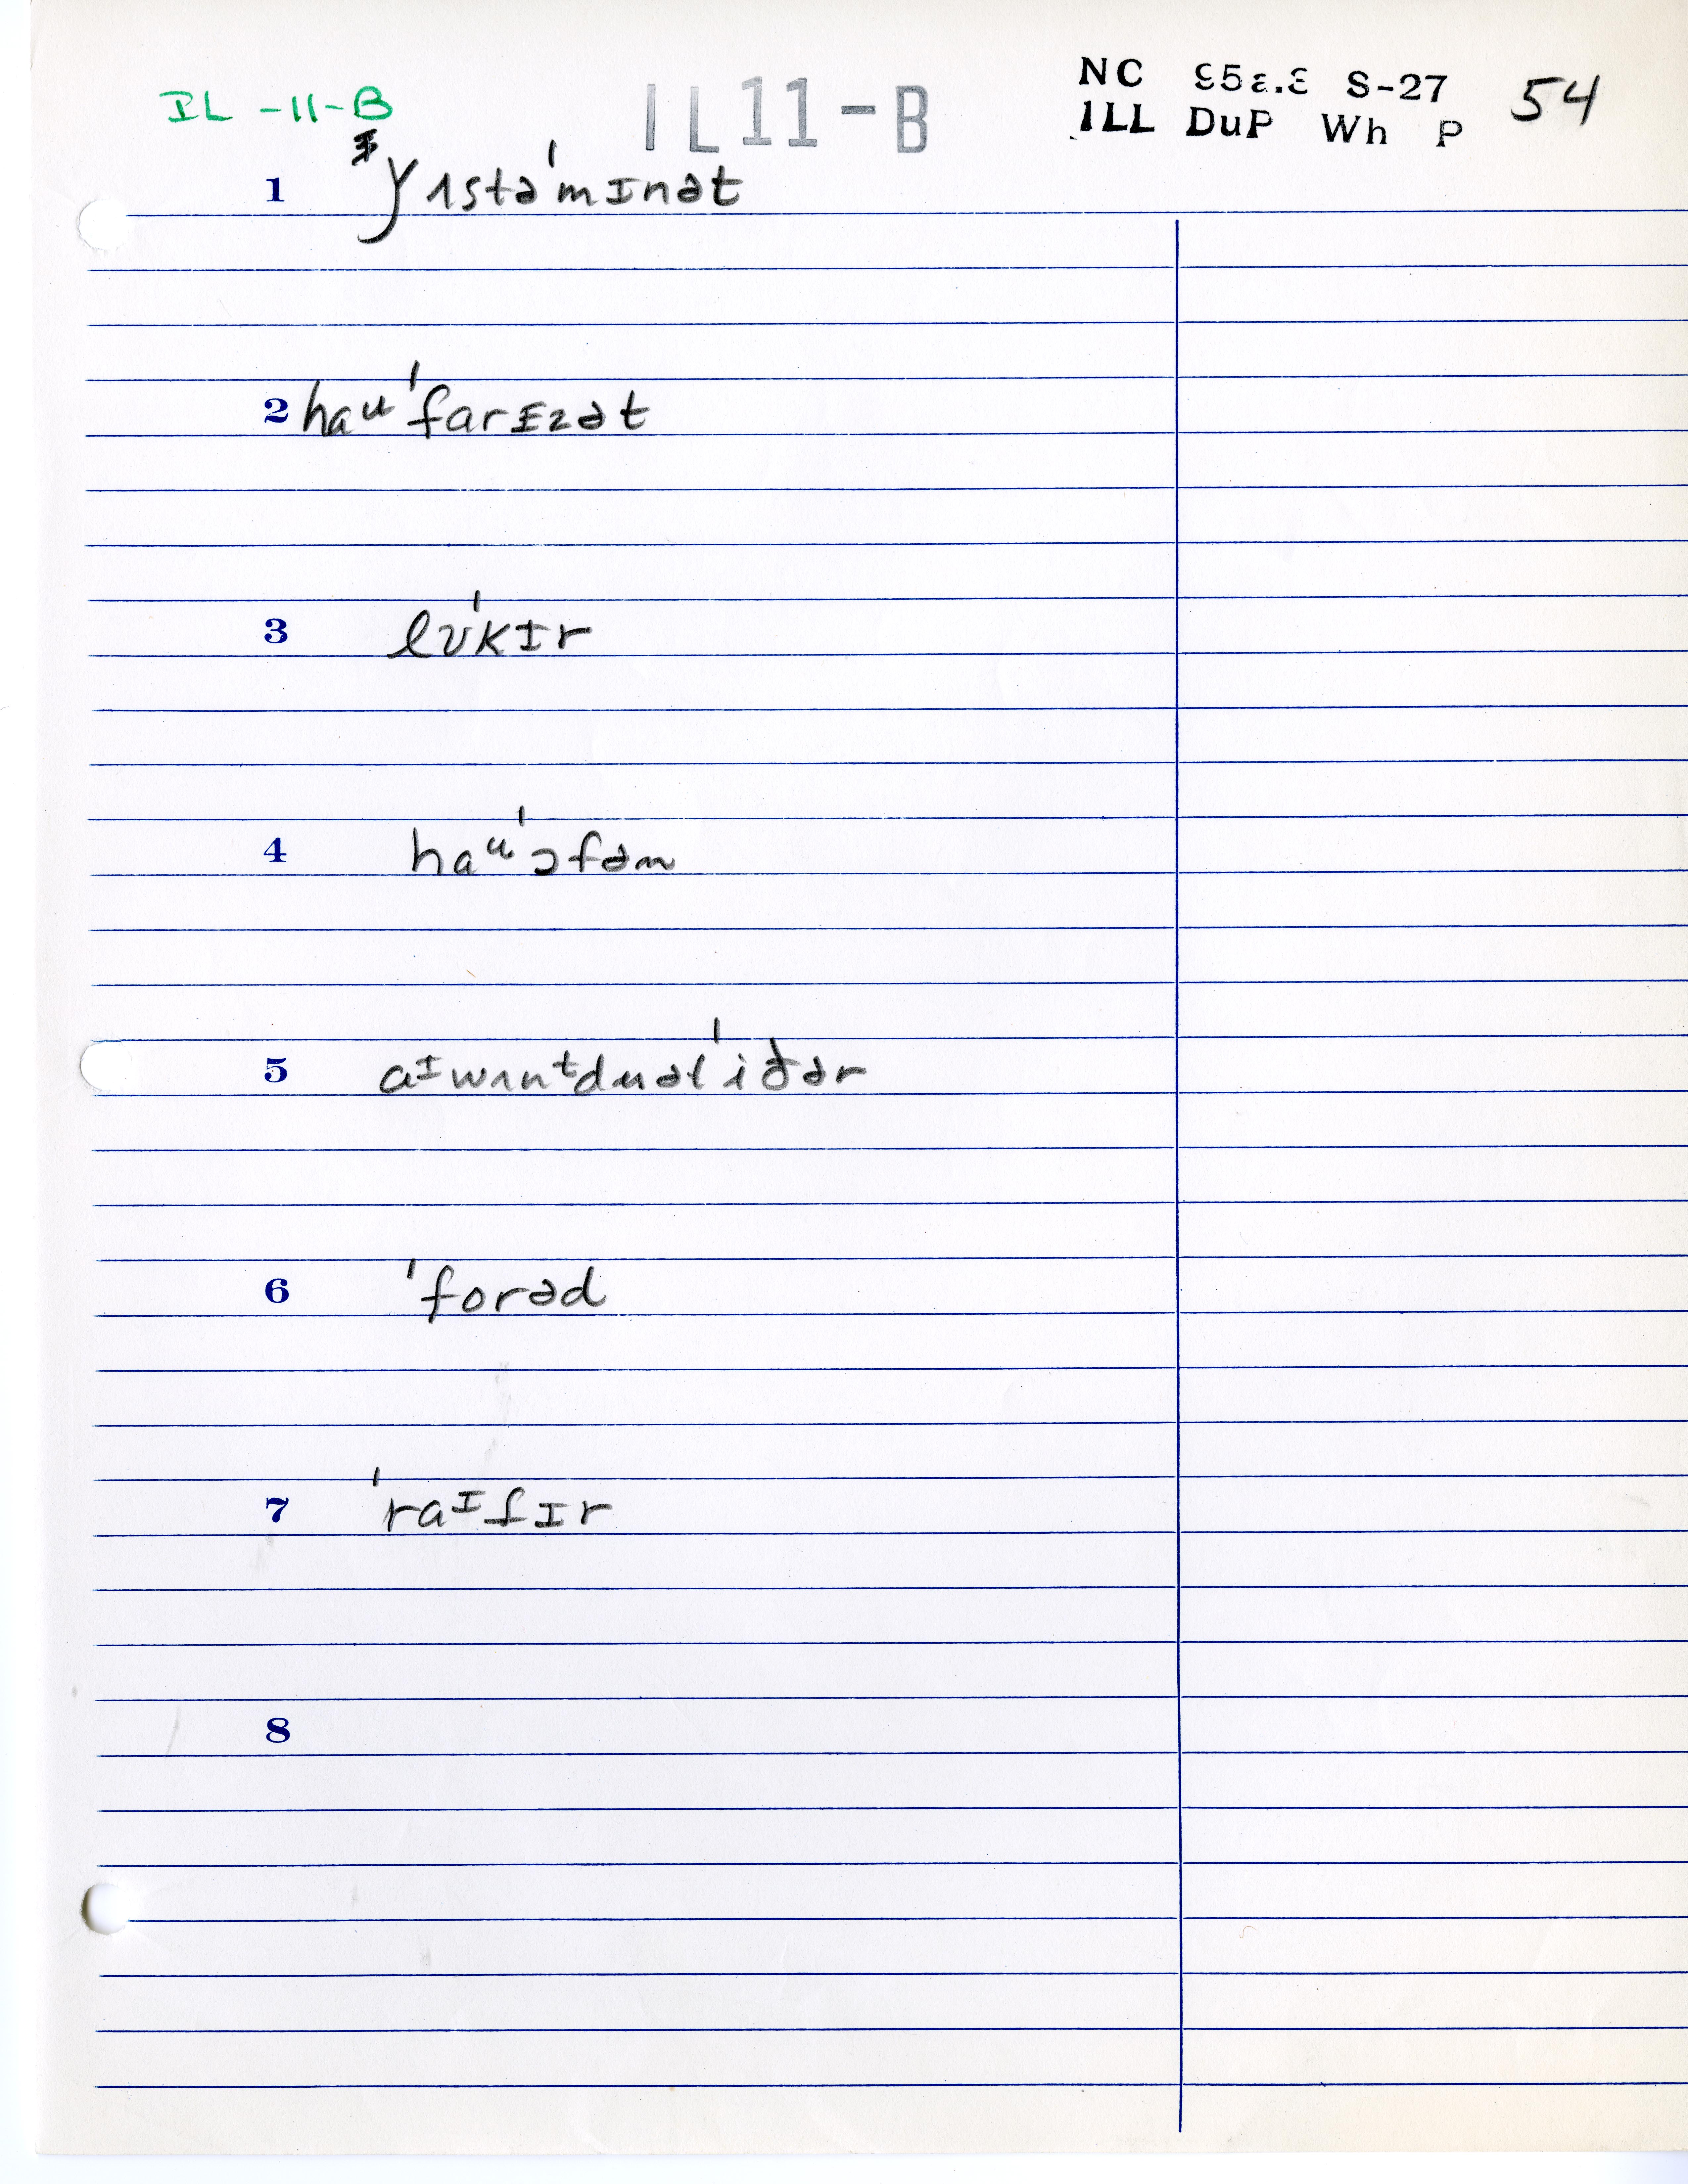 IL -11-B
IL11-B
NC 95ε.Ɛ S-27 54
ILL DuP Wh P
1 ɣʌstəˈmɪnət
2 haᵘˈfarɪzət
3 lʊˈkɪr
4 haᵘˈɔfəm
5 aᶦwʌnᵗduəlˈiðər
6 ˈforəd
7 ˈraᶦfɪr
8